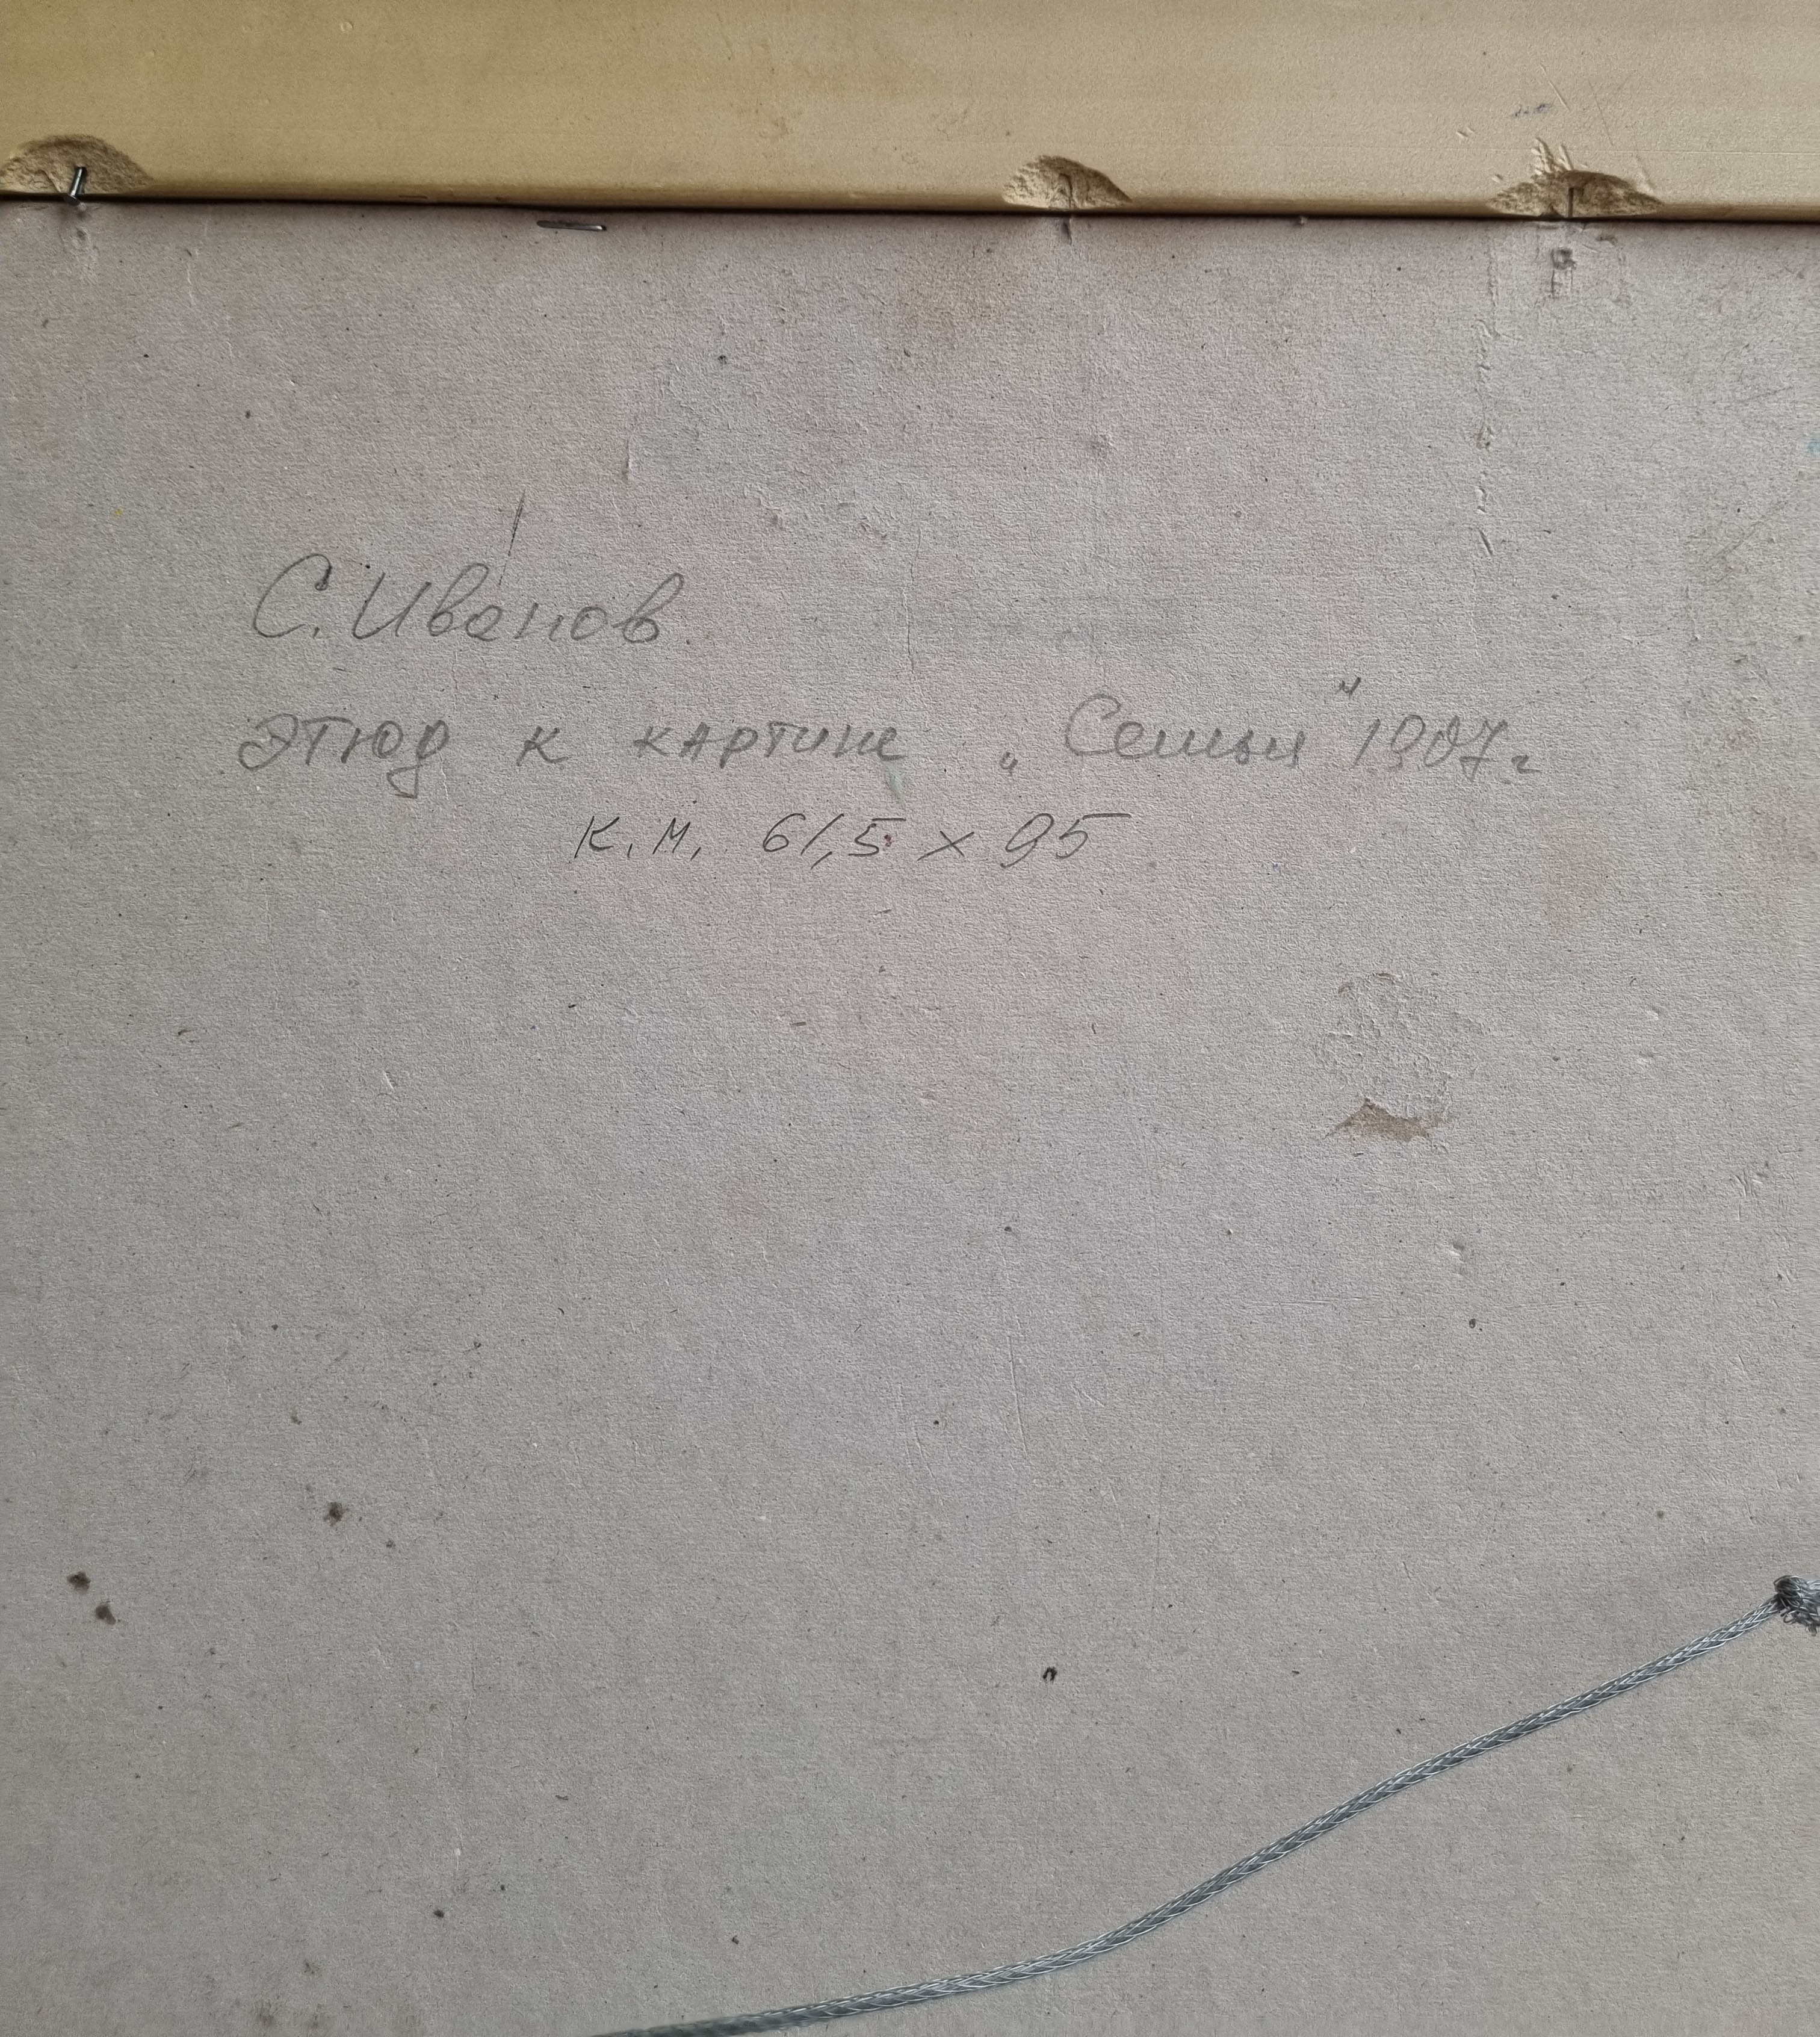 С. Иванов
этюд к картине „Семья" 1907 г
к.м. 61,5 х 95